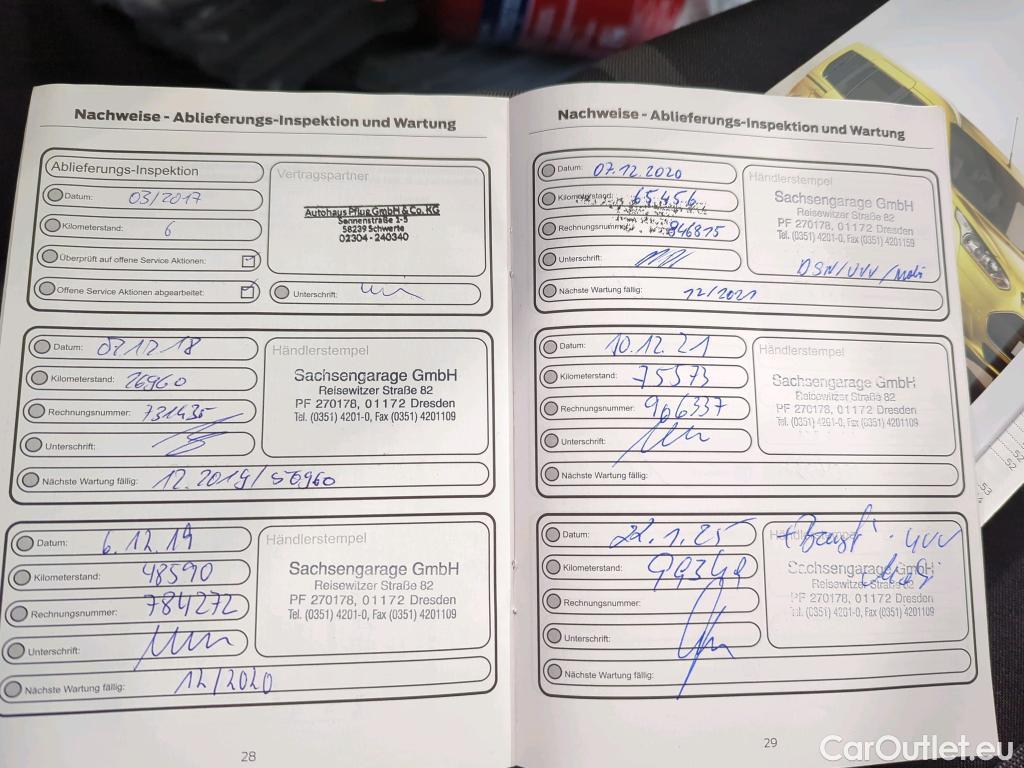 Nachweise - Ablieferungs-Inspektion und Wartung
Ablieferungs-Inspektion
Datum: 03/2017
Kilometerstand: 6
Überprüft auf offene Service Aktionen:
Offene Service Aktionen abgearbeitet:
Vertragspartner
Autohaus Pflug GmbH & Co. KG
Sonnenstraße 1-5
58239 Schwerte
02304 - 240340
Unterschrift:
Datum: 07.12.18
Kilometerstand: 26960
Rechnungsnummer: 731435
Unterschrift:
Nächste Wartung fällig: 12.2019/56960
Händlerstempel
Sachsengarage GmbH
Reisewitzer Straße 82
PF 270178, 01172 Dresden
Tel. (0351) 4201-0, Fax (0351) 4201109
Datum: 6.12.19
Kilometerstand: 48590
Rechnungsnummer: 784272
Unterschrift:
Nächste Wartung fällig: 12/2020
Händlerstempel
Sachsengarage GmbH
Reisewitzer Straße 82
PF 270178, 01172 Dresden
Tel. (0351) 4201-0, Fax (0351) 4201109
28
Nachweise - Ablieferungs-Inspektion und Wartung
Datum: 07.12.2020
Kilometerstand: 65456
Rechnungsnummer: 846815
Unterschrift:
Nächste Wartung fällig: 12/2021
Händlerstempel
Sachsengarage GmbH
Reisewitzer Straße 82
PF 270178, 01172 Dresden
Tel. (0351) 4201-0, Fax (0351) 4201159
Datum: 10.12.21
Kilometerstand: 75573
Rechnungsnummer: 966337
Unterschrift:
Nächste Wartung fällig:
Händlerstempel
Sachsengarage GmbH
Reisewitzer Straße 82
PF 270178, 01172 Dresden
Tel. (0351) 4201-0, Fax (0351) 4201109
Datum: 22.1.25
Kilometerstand: 99349
Rechnungsnummer:
Unterschrift:
Nächste Wartung fällig:
Händlerstempel
Sachsengarage GmbH
Reisewitzer Straße 82
PF 270178, 01172 Dresden
Tel. (0351) 4201-0, Fax (0351) 4201109
29
CarOutlet.eu